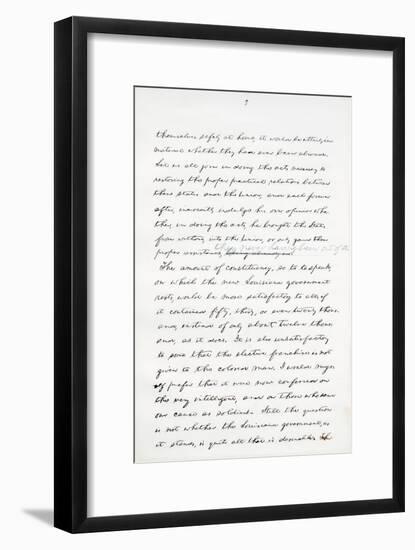 7
themselves safely at home, it would be utterly im
material whether they had ever been abroad.
Let us all join in doing the acts necessary to
restoring the proper practical relations between
these states and the Union; and each forever
after, innocently indulge his own opinion whe
ther, in doing the acts, he brought the States
from without, into the Union, or only gave them
proper assistance, they never having been out of it.
The amount of constituency, so to speak,
on which the new Louisiana government
rests, would be more satisfactory to all, if
it contained fifty, thirty, or even twenty thous
and, instead of only about twelve thous
and, as it does. It is also unsatisfactory
to some that the elective franchise is not
given to the colored man. I would myse
lf prefer that it were now conferred on
the very intelligent, and on those who serve
our cause as soldiers. Still the question
is not whether the Louisiana government, as
it stands, is quite all that is desirable. The